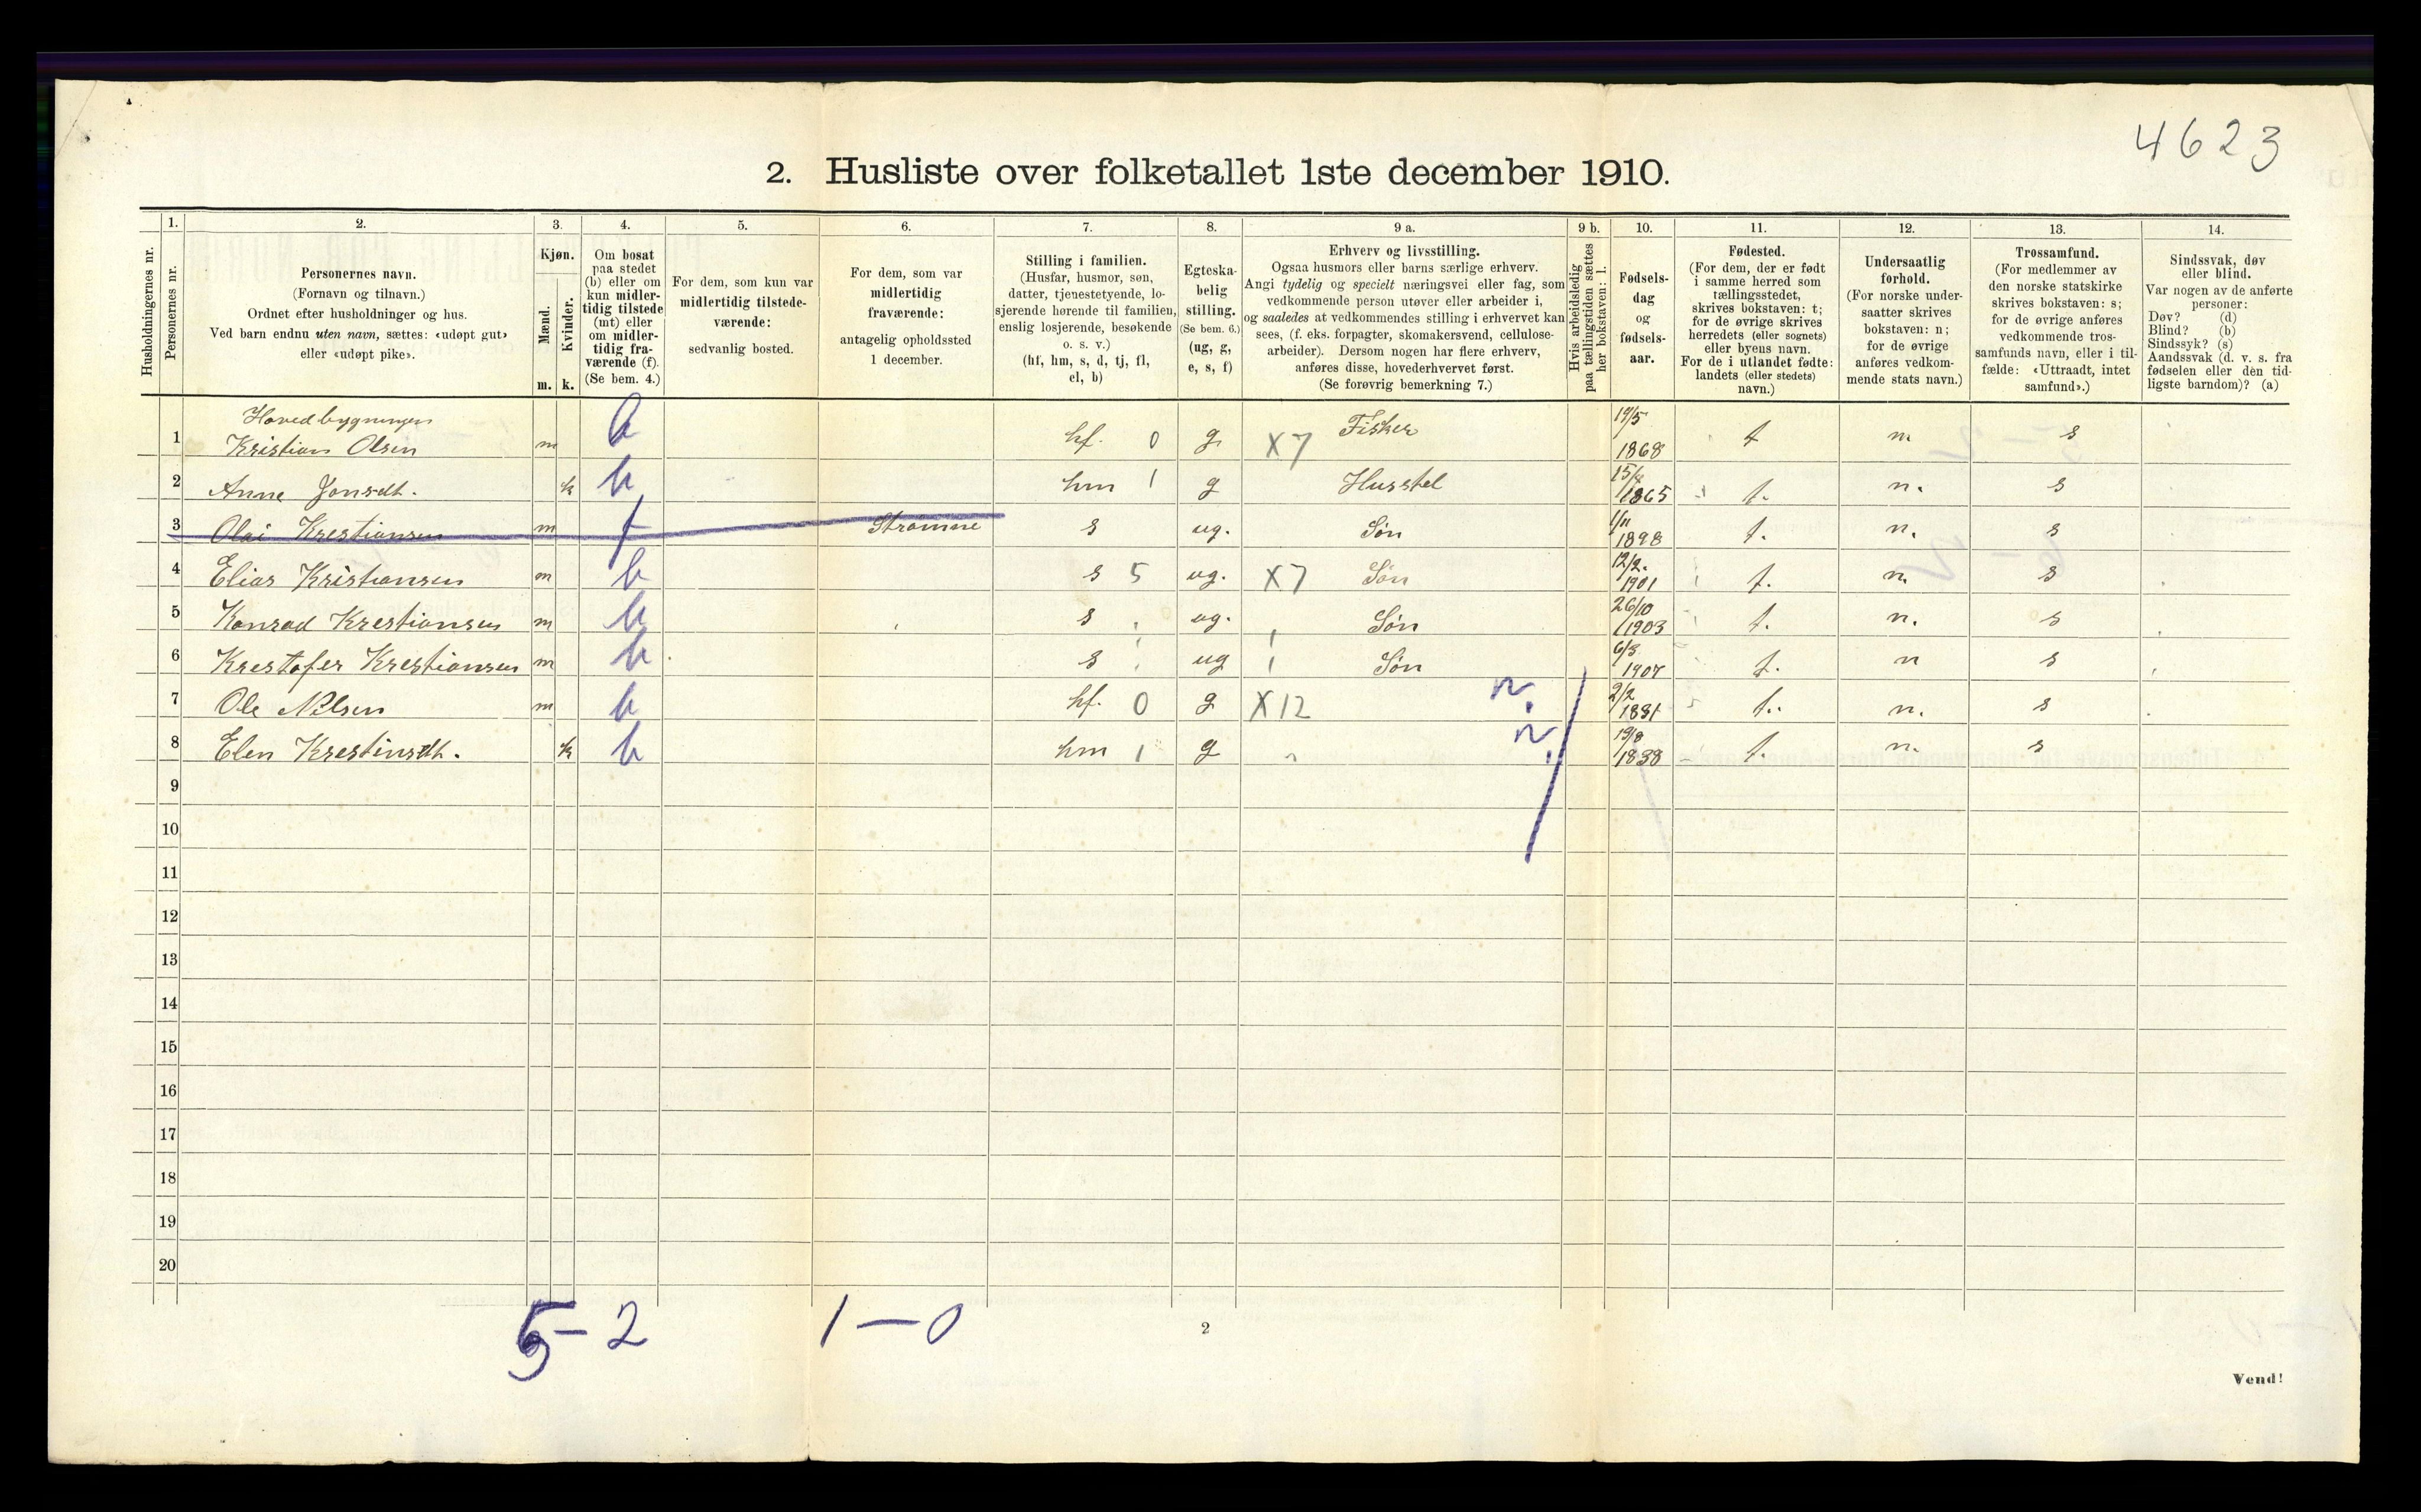 4623
2. Husliste over folketallet 1ste december 1910.
Husholdningernes nr.
1.
Personernes nr.
2.
Personernes navn.
(Fornavn og tilnavn.)
Ordnet efter husholdninger og hus.
Ved barn endnu uten navn, sættes: «udøpt gut»
eller «udøpt pike».
3.
Kjøn.
Mænd.
Kvinder.
m. k.
4.
Om bosat
paa stedet
(b) eller om
kun midler-
tidig tilstede
(mt) eller
om midler-
tidig fra-
værende (f).
(Se bem. 4.)
5.
For dem, som kun var
midlertidig tilstede-
værende:
sedvanlig bosted.
6.
For dem, som var
midlertidig
fraværende:
antagelig opholdssted
1 december.
7.
Stilling i familien.
(Husfar, husmor, søn,
datter, tjenestetyende, lo-
sjerende hørende til familien,
enslig losjerende, besøkende
o. s. v.)
(hf, hm, s, d, tj, fl,
el, b)
8.
Egteska-
belig
stilling.
(Se bem. 6.)
(ug, g,
e, s, f)
9 a.
Erhverv og livsstilling.
Ogsaa husmors eller barns særlige erhverv.
Angi tydelig og specielt næringsvei eller fag, som
vedkommende person utøver eller arbeider i,
og saaledes at vedkommendes stilling i erhvervet kan
sees, (f. eks. forpagter, skomakersvend, cellulose-
arbeider). Dersom nogen har flere erhverv,
anføres disse, hovederhvervet først.
(Se forøvrig bemerkning 7.)
9 b.
Hvis arbeidsledig
paa tællingstiden sættes
her bokstaven: l.
10.
Fødsels-
dag
og
fødsels-
aar.
11.
Fødested.
(For dem, der er født
i samme herred som
tællingsstedet,
skrives bokstaven: t;
for de øvrige skrives
herredets (eller sognets)
eller byens navn.
For de i utlandet fødte:
landets (eller stedets)
navn.)
12.
Undersaatlig
forhold.
(For norske under-
saatter skrives
bokstaven: n;
for de øvrige
anføres vedkom-
mende stats navn.)
13.
Trossamfund.
(For medlemmer av
den norske statskirke
skrives bokstaven: s;
for de øvrige anføres
vedkommende tros-
samfunds navn, eller i til-
fælde: «Uttraadt, intet
samfund».)
14.
Sindssvak, døv
eller blind.
Var nogen av de anførte
personer:
Døv? (d)
Blind? (b)
Sindssyk? (s)
Aandssvak (d. v. s. fra
fødselen eller den tid-
ligste barndom)? (a)
Hovedbygningen
1 Kristian Olsen m b hf. 0 g X7 Fisker 19/5 1868 t n. s
2 Anne Jonsdt. k b hm 1 g Husstel 1865 t. n. s
3 Olai Krestiansen m f Strømme s ug. Søn 1/11 1898 t. n. s
4 Elias Kristiansen m b s 5 ug. X7 Søn 12/2. 1901 t. n. s
5 Konrad Krestiansen m b s ug. Søn 26/10 1903 t. n. s
6 Krestofer Krestiansen m b s ug Søn 1907 t. n s
7 Ole Nilsen m b hf. 0 g X12 n. 2/2 1831 t. n. s
8 Elen Krestinsdt. k b hm 1 g " n. 19/8 1838 t. n. s
9
10
11
12
13
14
15
16
17
18
19
20
5-2 1-0
2
Vend!